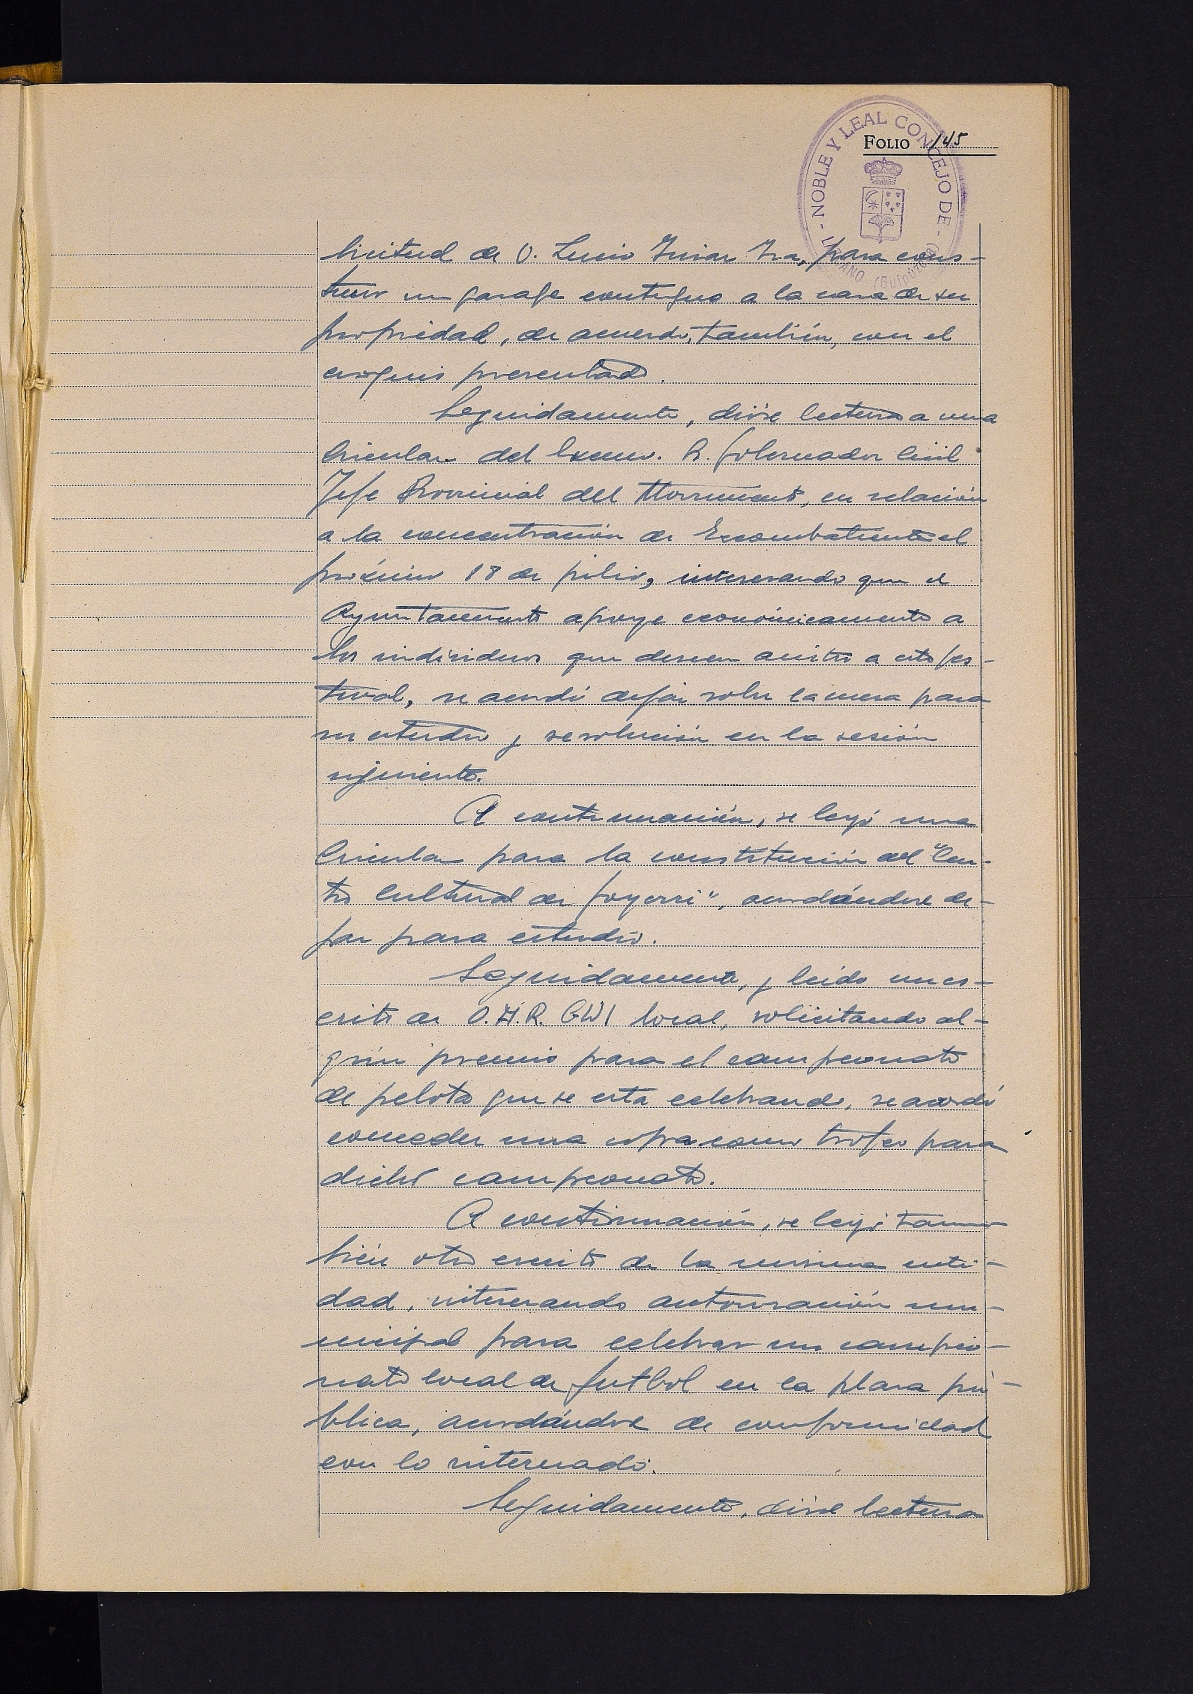 FOLIO 145
NOBLE Y LEAL CONCEJO DE (Guipúzcoa)
licitud de D. Lucio para cons-
truir un garaje contiguo a la casa de su
propiedad, de acuerdo, también, con el
croquis presentado.
Seguidamente, dióse lectura a una
Circular del Excmo. Sr. Gobernador Civil
Jefe Provincial del Movimiento, en relación
a la concentración de Excombatientes el
próximo 18 de julio, interesando que el
Ayuntamiento apoye económicamente a
los individuos que deseen asistir a este fes-
tival, se acordó dejar sobre la mesa para
su estudio y resolución en la sesión
siguiente.
A continuación, se leyó una
Circular para la constitución del "Cen-
tro Cultural de Goyerri", acordándose de-
jar para estudio.
Seguidamente, y leído un es-
crito de O.A.R. local, solicitando al-
gún premio para el campeonato
de pelota que se esta celebrando, se acordó
conceder una copa como trofeo para
dicho campeonato.
A continuación, se leyó tam-
bién otro escrito de la misma enti-
dad, interesando autorización mu-
nicipal para celebrar un campeo-
nato local de futbol en la plaza pú-
blica, acordándose de conformidad
con lo interesado.
Seguidamente, dióse lectura